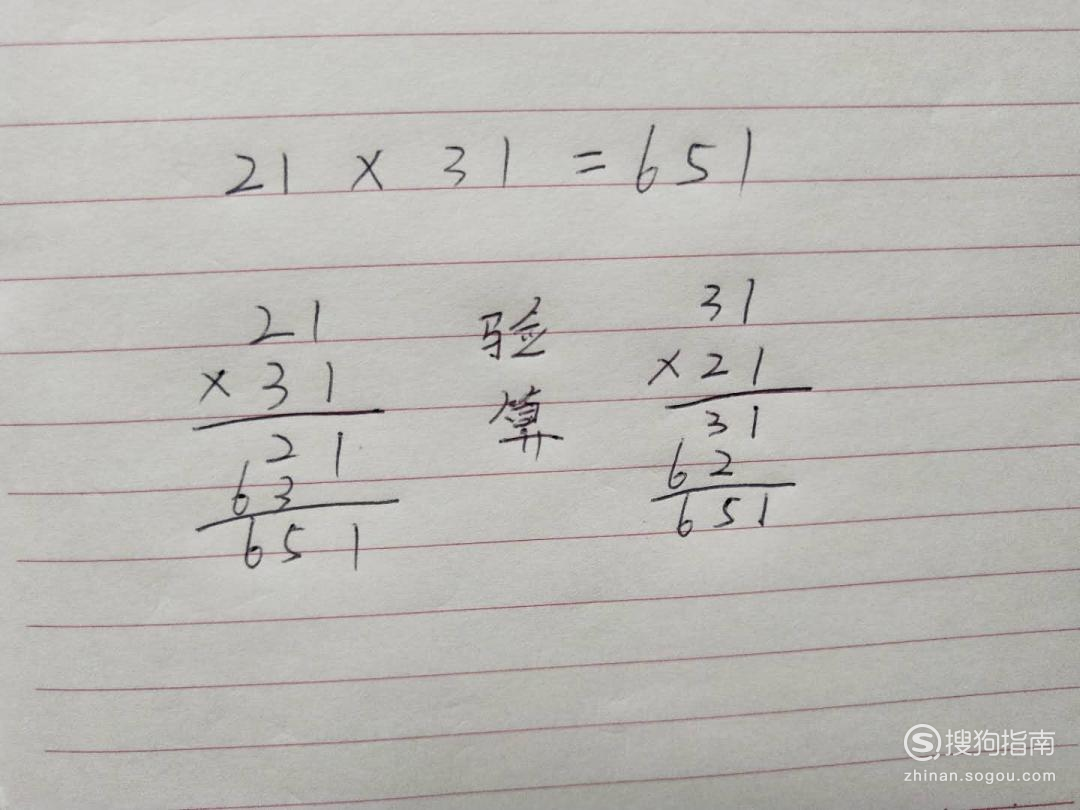 21 × 31 = 651
21
× 31
21
63
651
验
算
31
× 21
31
62
651
搜狗指南
zhinan.sogou.com